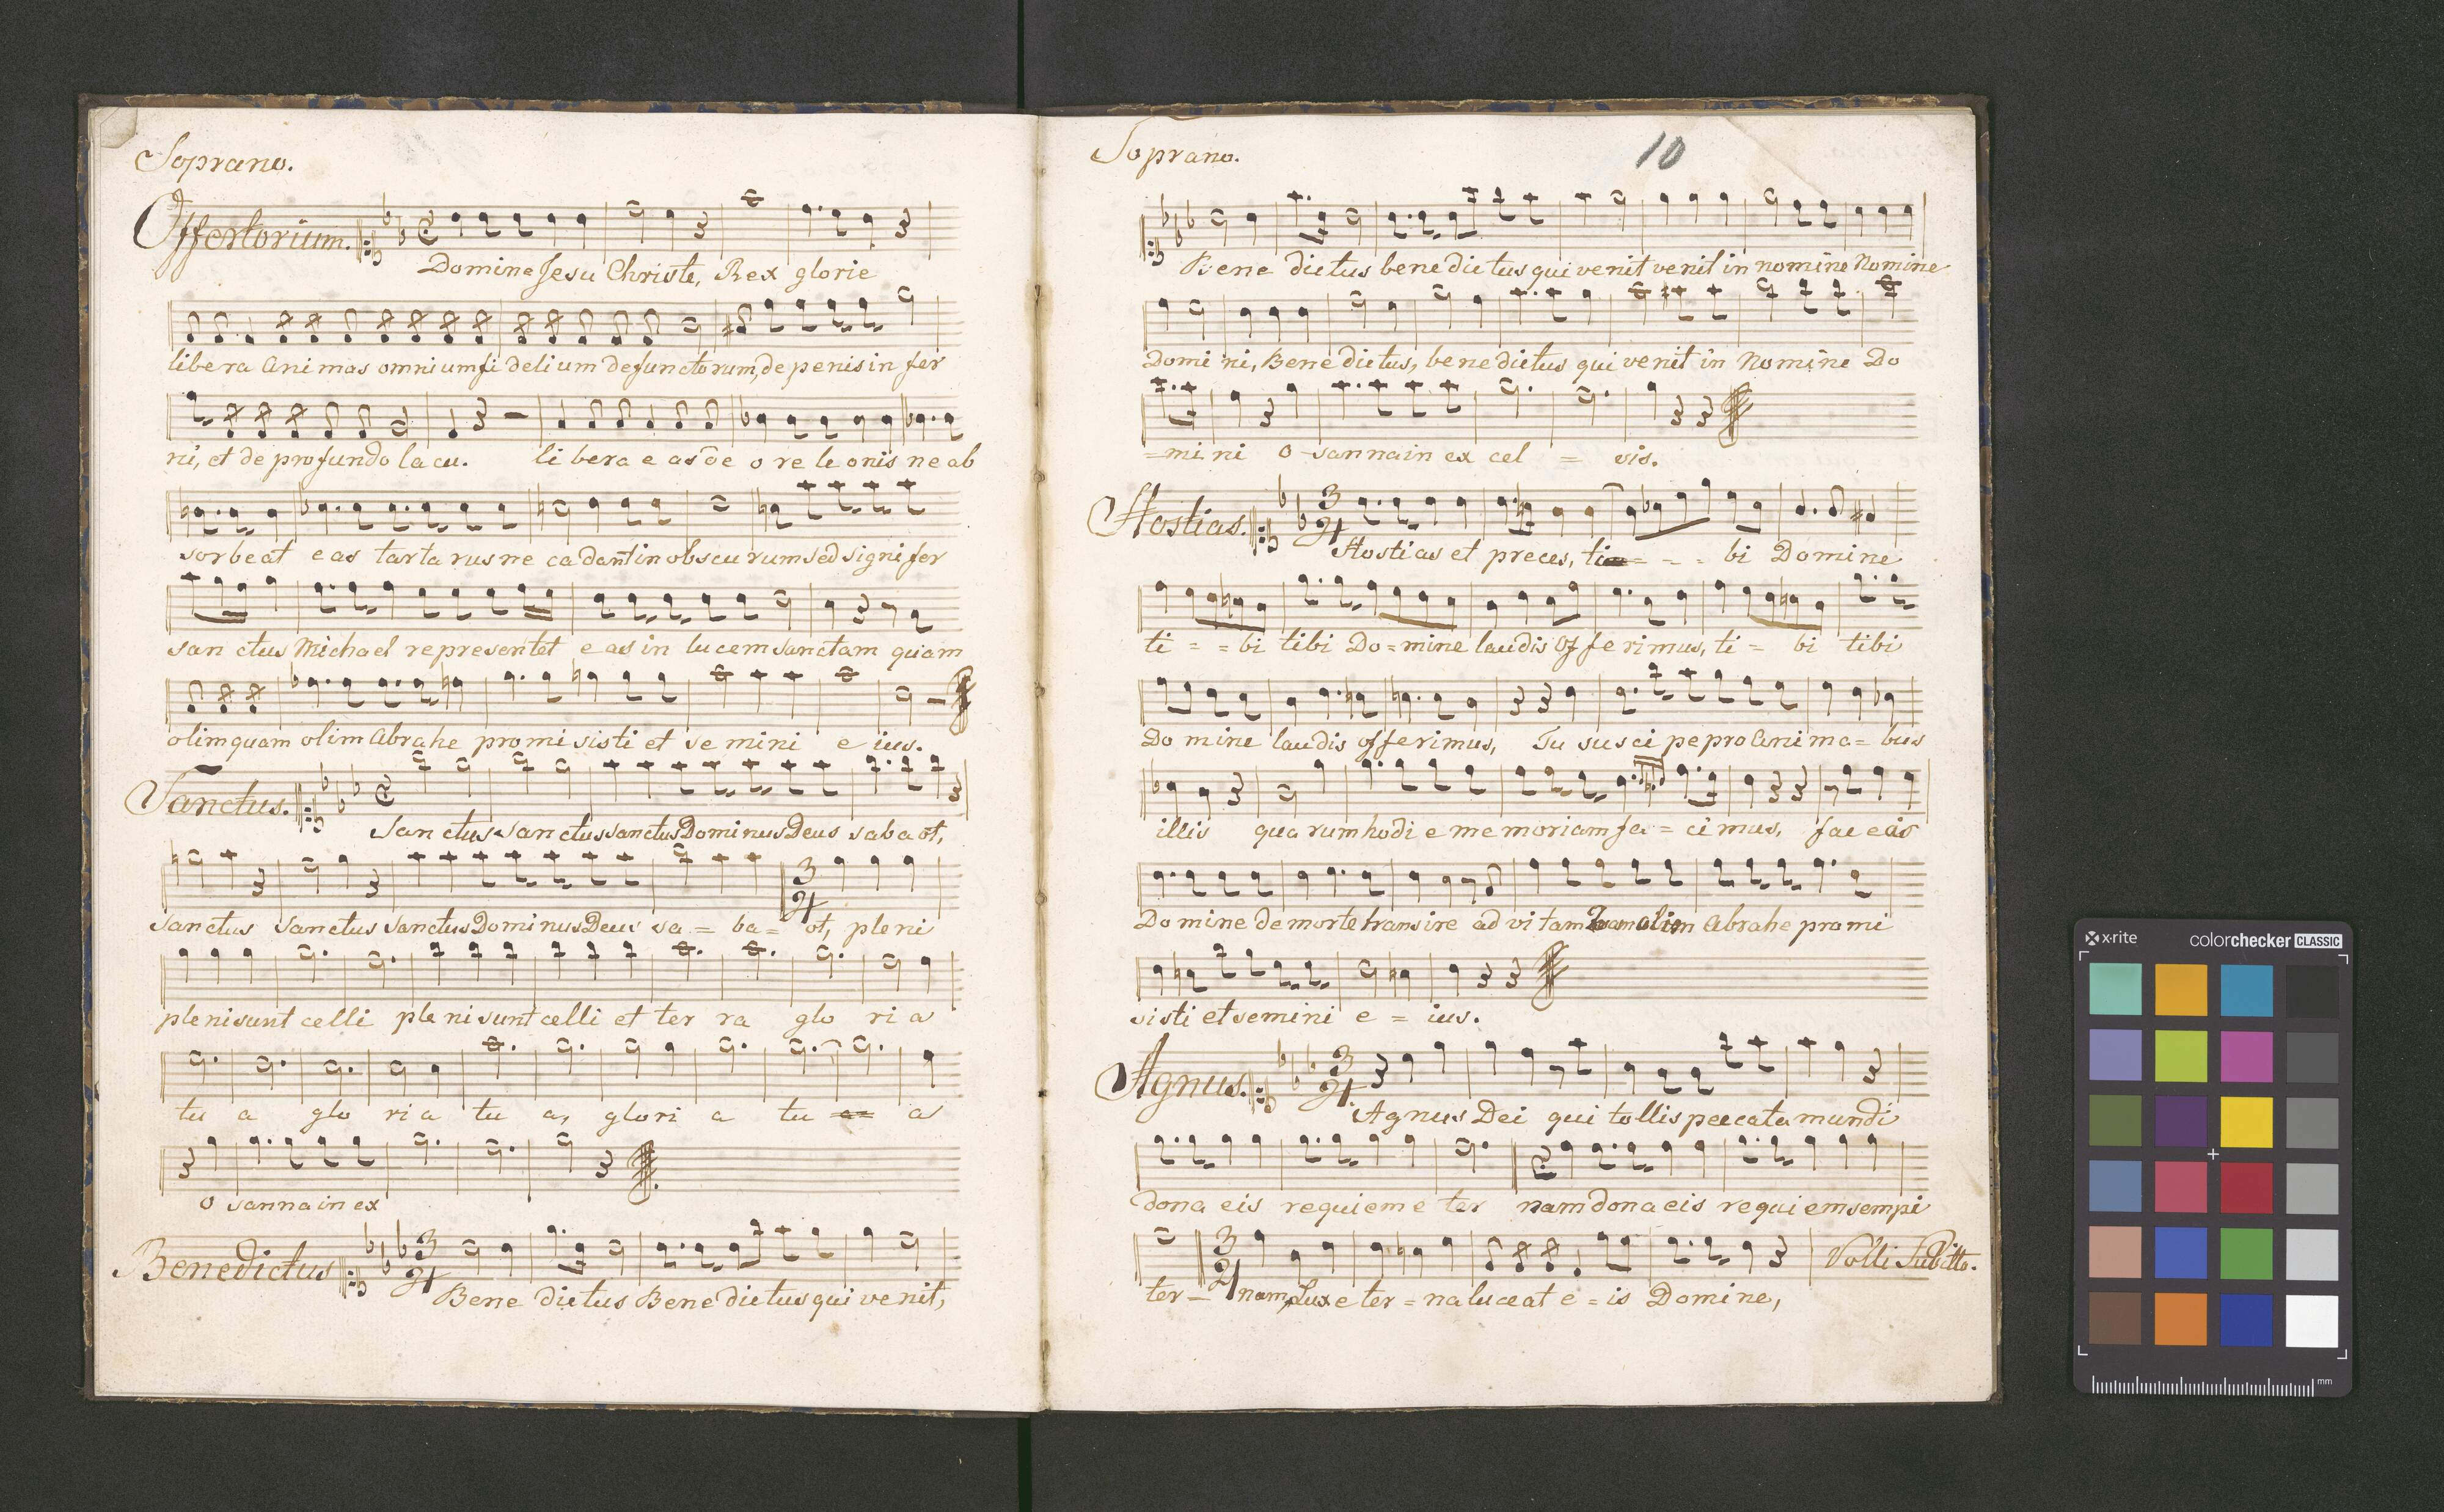 Soprano.
Offertorium.
Domine Jesu Christe, Rex glorie
libera animas omnium fidelium defunctorum, de penis in fer
ni, et de profundo lacu. libera eas de ore leonis ne ab
sorbeat eas tartarus ne cadant in obscurum sed signifer
sanctus Michael representet eas in lucem sanctam quam
olim quam olim Abrahe promisisti et semini eius.
Sanctus.
Sanctus Sanctus sanctus Dominus Deus sabaot,
Sanctus Sanctus Sanctus Dominus Deus sa = ba = ot, pleni
pleni sunt celli pleni sunt celli et terra gloria
tu a glo ri a tu a, glori a tu a
o sanna in ex
Benedictus
Benedictus Benedictus qui venit,
Soprano.
10
Benedictus benedictus qui venit venit in nomine Nomine
Domini, Benedictus, benedictus qui venit in Nomine Do
=mini o-sanna in excel = sis.
Hostias.
3
4
Hostias et preces, ti = - = bi Domine
ti = = bi tibi Do=mine laudis offerimus, ti = bi tibi
Domine laudis offerimus, Tu suscipe pro anima=bus
illis quarum hodie memoriam fa = cimus, fac eas
Domine de morte transire ad vitam quam olim Abrahe promi
sisti et semini e = ius.
Agnus.
3
4
Agnus Dei qui tollis peccata mundi
dona eis requiem eter nam dona eis requiem sempi
Volti Subitto.
ter - nam, Lux eter = na luceat e = is Domine,
x·rite
colorchecker CLASSIC
mm